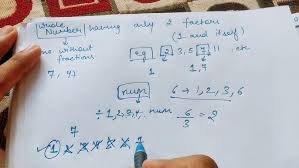 Whole Number having only 2 factors
(1 and itself)
no without fractions
eg 2, 3, 5, 7, 11 etc.
7, 4)
1 1, 7
num 6 → 1, 2, 3, 6
÷ 1, 2, 3, 4, .. num
6/3 = 2
7
1 2 3 4 5 6 7